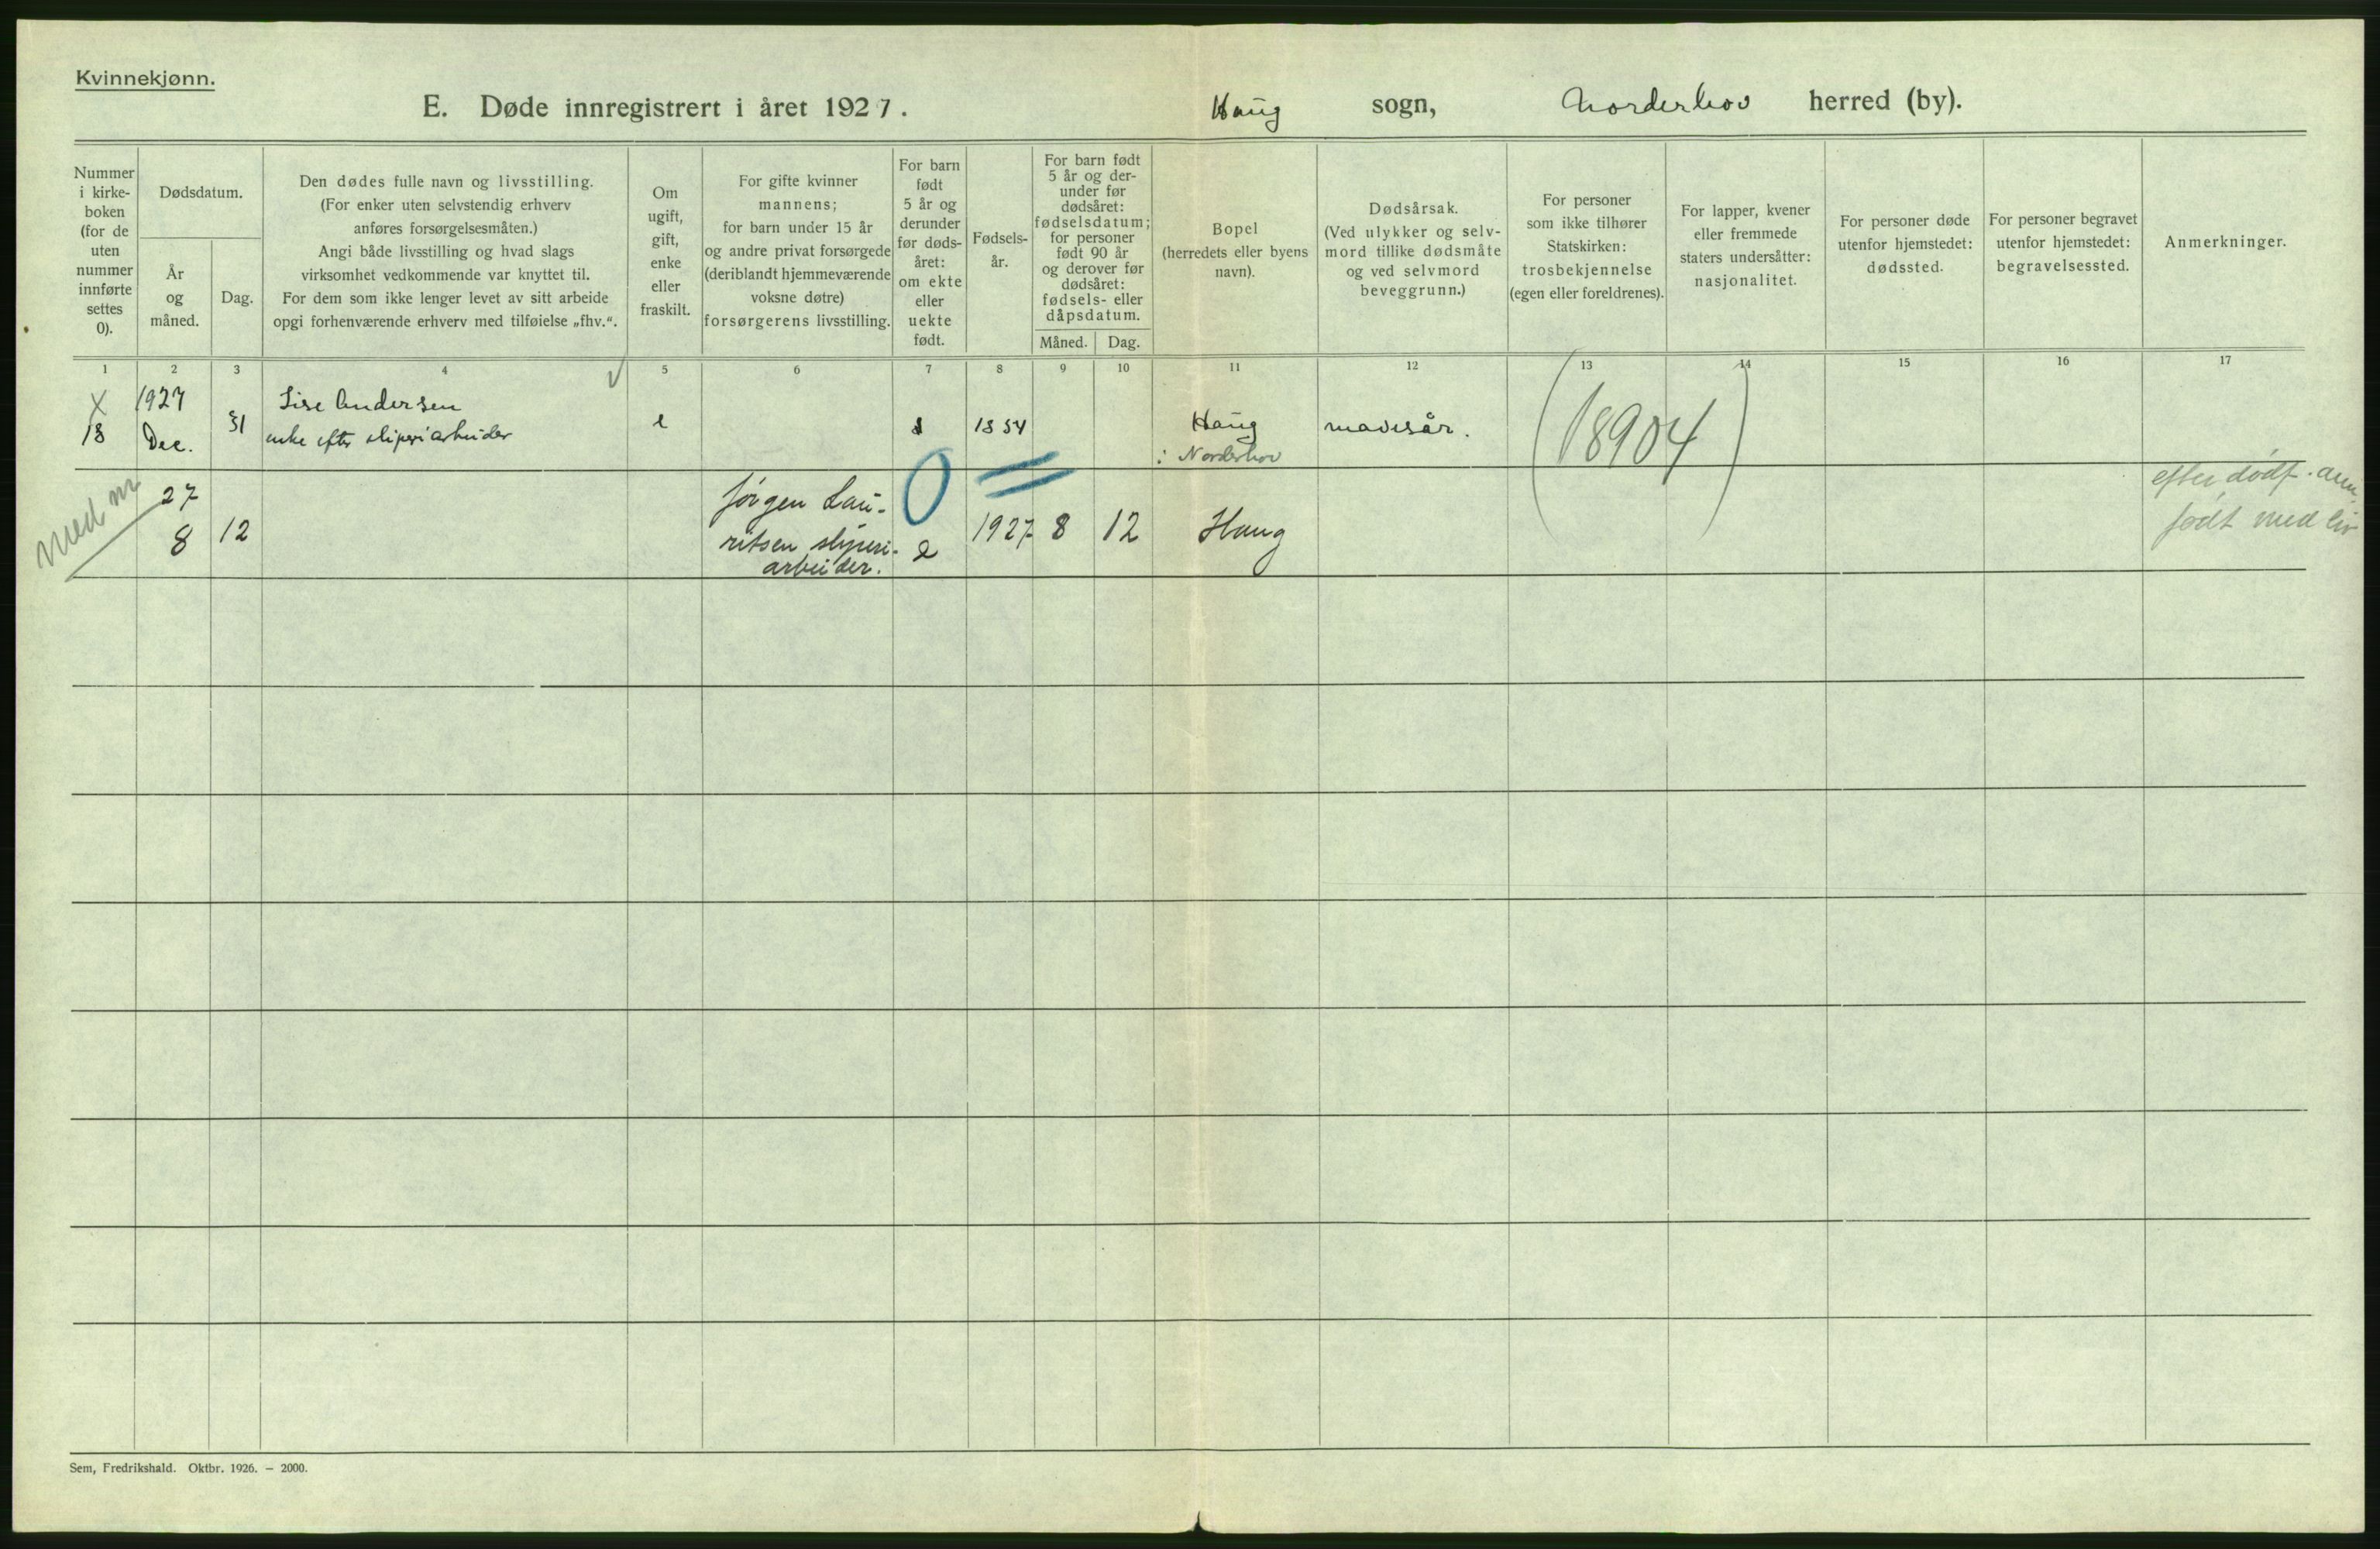 Kvinnekjønn.
E. Døde innregistrert i året 1927. Haug sogn, Norderhov herred (by).
Nummer
i kirke-
boken
(for de
uten
nummer
innførte
settes
0).
Dødsdatum.
År
og
måned.
Dag.
Den dødes fulle navn og livsstilling.
(For enker uten selvstendig erhverv
anføres forsørgelsesmåten.)
Angi både livsstilling og hvad slags
virksomhet vedkommende var knyttet til.
For dem som ikke lenger levet av sitt arbeide
opgi forhenværende erhverv med tilføielse „fhv.“.
Om
ugift,
gift,
enke
eller
fraskilt.
For gifte kvinner
mannens;
for barn under 15 år
og andre privat forsørgede
(deriblandt hjemmeværende
voksne døtre)
forsørgerens livsstilling.
For barn
født
5 år og
derunder
før døds-
året:
om ekte
eller
uekte
født.
Fødsels-
år.
For barn født
5 år og der-
under før
dødsåret:
fødselsdatum;
for personer
født 90 år
og derover før
dødsåret:
fødsels- eller
dåpsdatum.
Måned. Dag.
Bopel
(herredets eller byens
navn).
Dødsårsak.
(Ved ulykker og selv-
mord tillike dødsmåte
og ved selvmord
beveggrunn.)
For personer
som ikke tilhører
Statskirken:
trosbekjennelse
(egen eller foreldrenes).
For lapper, kvener
eller fremmede
staters undersåtter:
nasjonalitet.
For personer døde
utenfor hjemstedet:
dødssted.
For personer begravet
utenfor hjemstedet:
begravelsessted.
Anmerkninger.
1 2 3 4 5 6 7 8 9 10 11 12 13 14 15 16 17
X 1927 Lise Andersen
18 Dec. 31 enke efter sliperiarbeider e 1854 Haug mavesår. (18904)
i Norderhov
med nr 27 Jørgen Lau-
8 12 ritsen sliperi- e 1927 8 12 Haug
arbeider.
efter dødf. anm.
født med liv
Sem, Fredrikshald. Oktbr. 1926. — 2000.